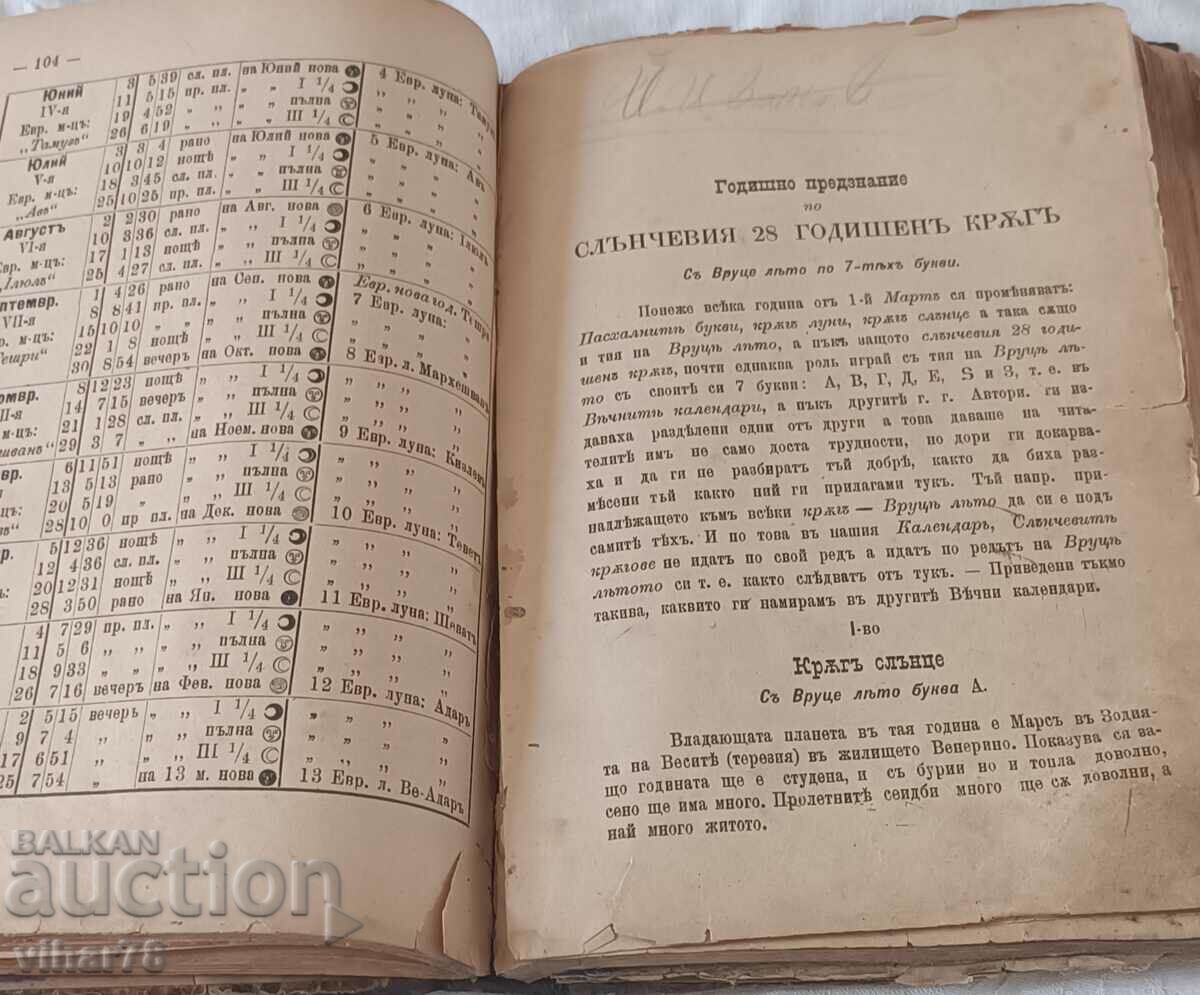 — 104 —
Юний 3 5 39 сл. пл. на Юний нова 4 Евр. луна:
IV-я 11 5 15 пр. пл. „ „ I 1/4 „ „ „
Евр. м-цъ: 19 4 52 „ „ „ пълна „ „ „
„Тамузъ“ 26 6 19 „ „ „ III 1/4 „ „ „
Юлий 3 3 4 рано на Юлий нова 5 Евр. луна: Авъ
V-я 10 10 12 нощѣ „ „ I 1/4 „ „ „
Евр. м-цъ: 18 3 45 сл. пл. „ „ пълна „ „ „
„Авъ“ 25 10 25 пр. пл. „ „ III 1/4 „ „ „
Августъ 2 2 30 рано на Авг. нова 6 Евр. луна: Ілюлъ
VI-я 10 3 36 сл. пл. „ „ I 1/4 „ „ „
Евр. м-цъ: 17 1 13 нощѣ „ „ пълна „ „ „
„Ілюлъ“ 25 4 27 сл. пл. „ „ III 1/4 „ „ „
птемвр. 1 4 26 рано на Сеп. нова Евр. нова год. Тешри
VII-я 8 8 41 пр. пл. „ „ I 1/4 7 Евр. луна: „
р. м-цъ: 15 10 10 „ „ „ „ пълна „ „ „
ешри“ 22 1 8 нощѣ „ „ III 1/4 „ „ „
30 8 54 вечеръ на Окт. нова 8 Евр. л. Мархешванъ
омвр. 8 12 23 нощѣ „ „ I 1/4 „ „ „
II-я 14 7 15 вечеръ „ „ пълна „ „ „
м-цъ: 21 1 28 сл. пл. „ „ III 1/4 „ „ „
шванъ“ 29 3 7 „ „ на Ноем. нова 9 Евр. луна: Кизлевъ
вр. 6 11 51 нощѣ „ „ I 1/4 „ „ „
я 13 5 13 рано „ „ пълна „ „ „
цъ: 20 5 19 „ „ „ III 1/4 „ „ „
ъ“ 28 10 0 пр пл. на Дек. нова 10 Евр. луна: Теветъ
р. 5 12 36 нощѣ „ „ I 1/4 „ „ „
12 4 36 сл. пл. „ „ пълна „ „ „
ъ: 20 12 31 нощѣ „ „ III 1/4 „ „ „
28 3 50 рано на Ян. нова 11 Евр. луна: Шеватъ
4 7 29 пр. пл. „ „ I 1/4 „ „ „
11 5 6 „ „ „ „ пълна „ „ „
18 9 33 „ „ „ „ III 1/4 „ „ „
26 7 16 вечеръ на Фев. нова 12 Евр. луна: Адаръ
2 5 15 вечеръ „ „ I 1/4 „ „ „
9 7 4 „ „ „ пълна „ „ „
17 6 51 „ „ „ III 1/4 „ „ „
25 7 54 „ на 13 м. нова 13 Евр. л. Ве-Адаръ
Годишно предзнание
по
СЛЪНЧЕВИЯ 28 ГОДИШЕНЪ КРѪГЪ
Съ Вруце лѣто по 7-тѣхъ букви.
Понеже всѣка година отъ 1-й Мартъ ся промѣняватъ:
Пасхалнитѣ букви, крѫгъ луни, крѫгъ слънце а така сѫщо
и тия на Вруцѣ лѣто, а пъкъ защото слънчевия 28 годи-
шенъ крѫгъ, почти еднаква роль играй съ тия на Вруцѣ лѣ-
то съ своитѣ си 7 букви: А, В, Г, Д, Е, Ѕ и З, т. е. въ
Вѣчнитѣ календари, а пъкъ другитѣ г. г. Автори. ги из-
даваха раздѣлени едни отъ други а това даваше на чита-
телитѣ имъ не само доста трудности, но дори ги докарва-
ха и да ги не разбиратъ тъй добрѣ, както да биха раз-
мѣсени тъй както ний ги прилагами тукъ. Тъй напр. при-
надлѣжащето къмъ всѣки крѫгъ — Вруцѣ лѣто да си е подъ
самитѣ тѣхъ. И по това въ нашия Календаръ, Слънчевитѣ
крѫгове не идатъ по свой редъ а идатъ по редътъ на Вруцѣ
лѣтото си т. е. както слѣдватъ отъ тукъ. — Приведени тъкмо
такива, каквито ги намирамъ въ другитѣ Вѣчни календари.
I-во
Крѫгъ слънце
Съ Вруце лѣто буква А.
Владающата планета въ тая година е Марсъ въ Зодия-
та на Веситѣ (терезия) въ жилището Венерино. Показува ся ва-
що годината ще е студена, и съ бурии но и топла доволно,
сено ще има много. Пролетнитѣ сеидби много ще сѫ доволни, а
най много житото.
BALKAN
auction
vihar78